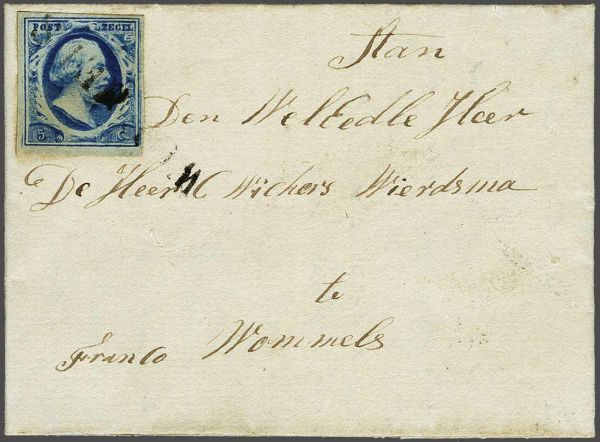 POST ZEGEL
5 C.
Aan
Den WelEdle Heer
De Heer Wickers Wierdsma
te
Wommels
Franco